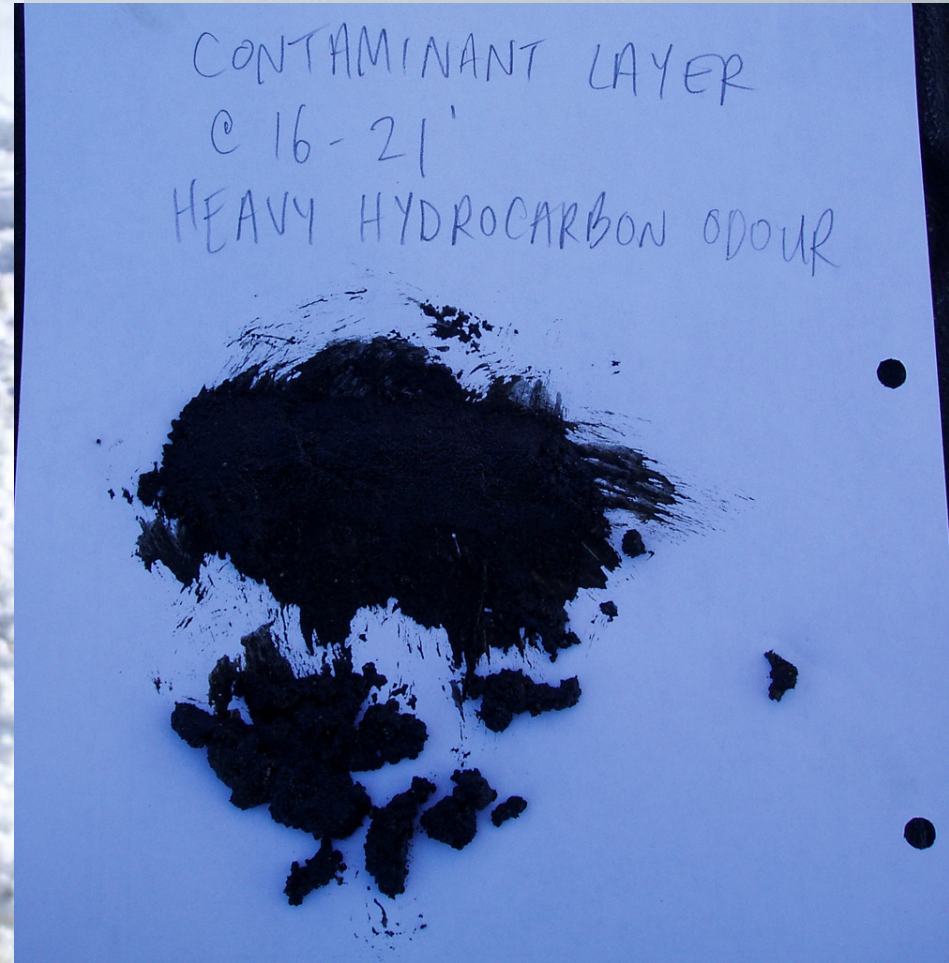 CONTAMINANT LAYER
@ 16-21'
HEAVY HYDROCARBON ODOUR